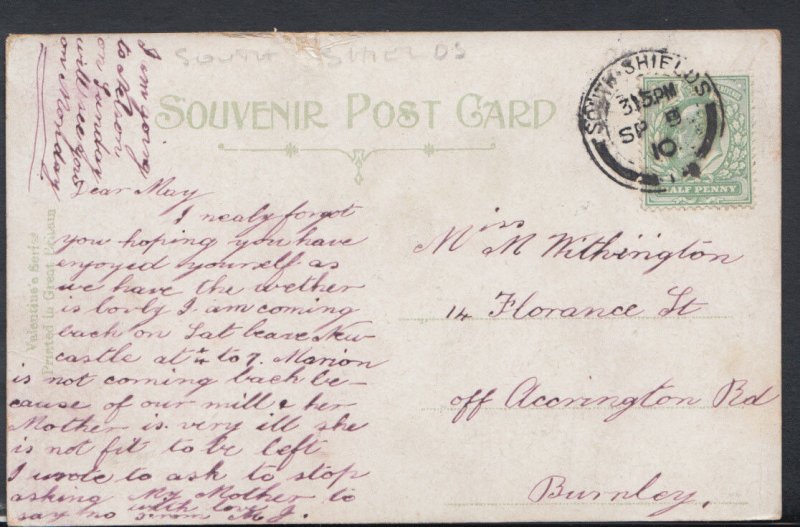 SOUTH SHIELDS
SOUVENIR POST CARD
SOUTH SHIELDS
3 15 PM
SP 8
10
HALF PENNY
I am going
to
on Sunday
will see you
on Monday
Dear May
I nealy forgot
you hoping you have
enjoyed yourself as
we have the wether
is lovly I am coming
back on Sat leave New-
castle at 1/4 to 7. Marion
is not coming back be-
cause of our mill & her
Mother is very ill she
is not fit to be left
I wrote to ask to stop
asking My Mother to
say no with love
from M J.
Miss
M Withington
14 Florance St
off Accrington Rd
Burnley,
Valentine's Series
Printed in Great Britain